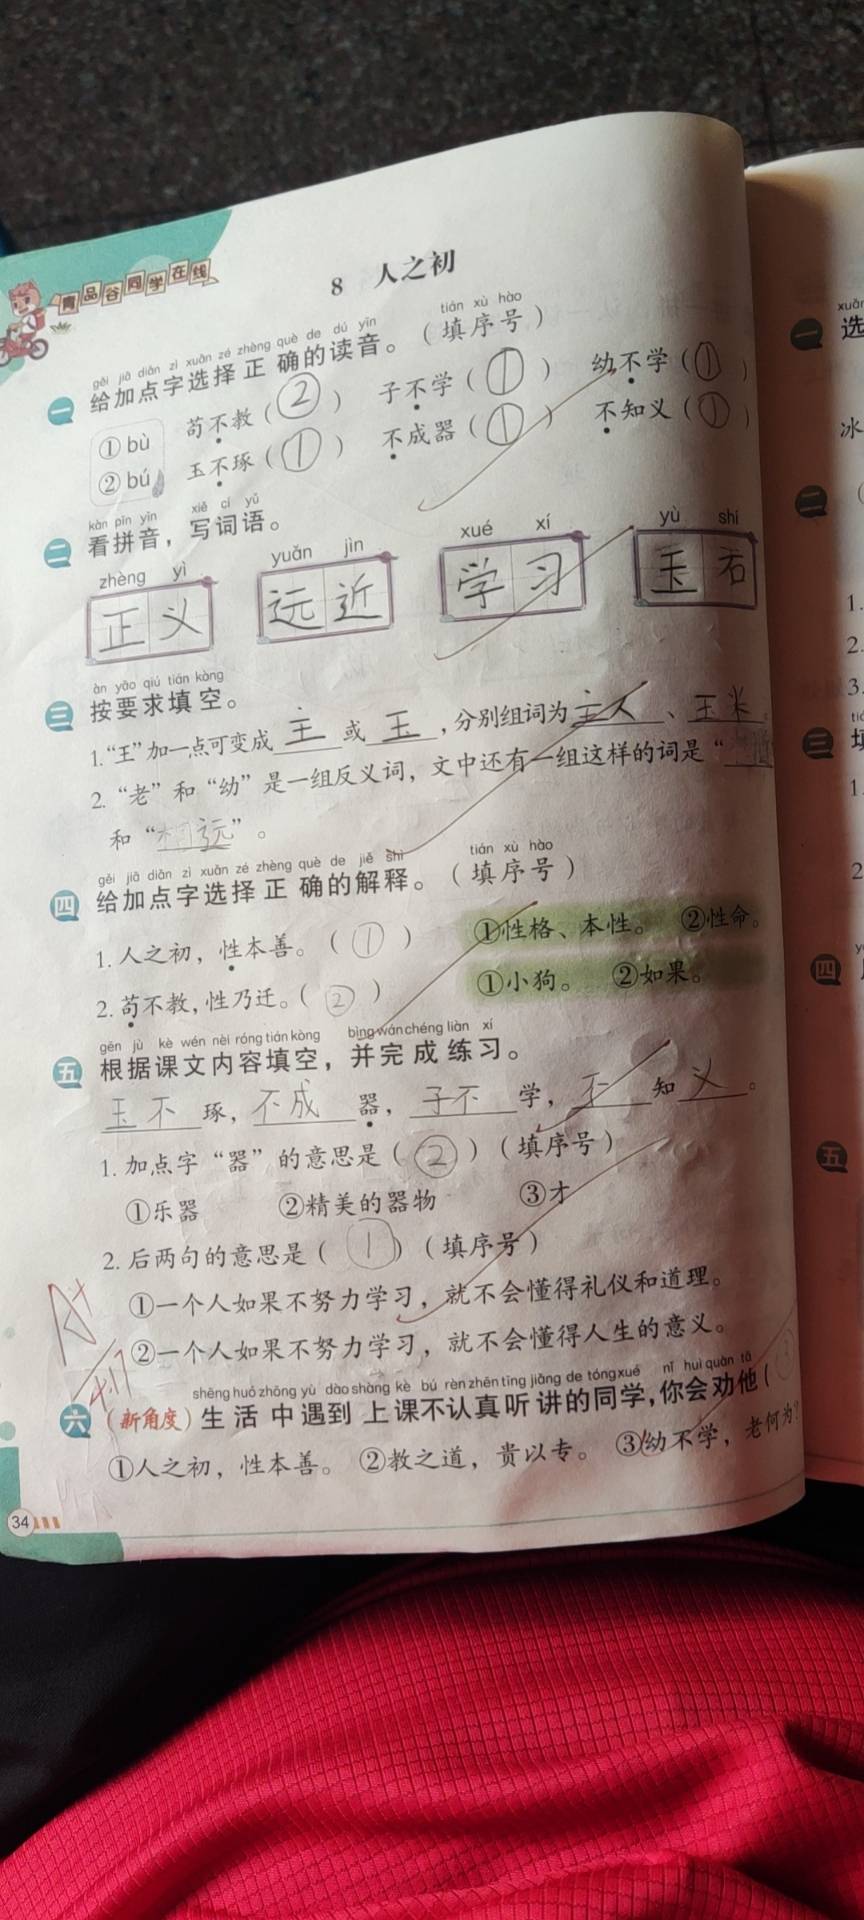 青品谷同学在线
8 人之初
gěi jiā diǎn zì xuǎn zé zhèng què de dú yīn tián xù hào
一 给加点字选择正确的读音。（填序号）
①bù 苟不教（②） 子不学（①） 幼不学（①）
②bú 玉不琢（①） 不成器（①） 不知义（①）
kàn pīn yīn xiě cí yǔ
二 看拼音，写词语。
zhèng yì yuǎn jìn xué xí yù shí
正义 远近 学习 玉石
àn yāo qiú tián kòng
三 按要求填空。
1.“王”加一点可变成主或玉，分别组词为主人、玉米。
2.“老”和“幼”是一组反义词，文中还有一组这样的词是“
和“相远”。
gěi jiā diǎn zì xuǎn zé zhèng què de jiě shì tián xù hào
四 给加点字选择正确的解释。（填序号）
1.人之初，性本善。（①） ①性格、本性。 ②性命。
2.苟不教，性乃迁。（②） ①小狗。 ②如果。
gēn jù kè wén nèi róng tián kòng bìng wán chéng liàn xí
五 根据课文内容填空，并完成练习。
玉不琢，不成器，子不学，不知义。
1.加点字“器”的意思是（②）（填序号）
①乐器 ②精美的器物 ③才
2.后两句的意思是（①）（填序号）
①一个人如果不努力学习，就不会懂得礼仪和道理。
②一个人如果不努力学习，就不会懂得人生的意义。
A+
4.17
shēng huó zhōng yù dào shàng kè bú rèn zhēn tīng jiǎng de tóng xué nǐ huì quàn tā
六（新角度）生活中遇到上课不认真听讲的同学，你会劝他（③
①人之初，性本善。 ②教之道，贵以专。 ③幼不学，老何为？
34
xuǎn
一 选
冰
二（
1.
2.
3.
三 填
1.
2
四
五